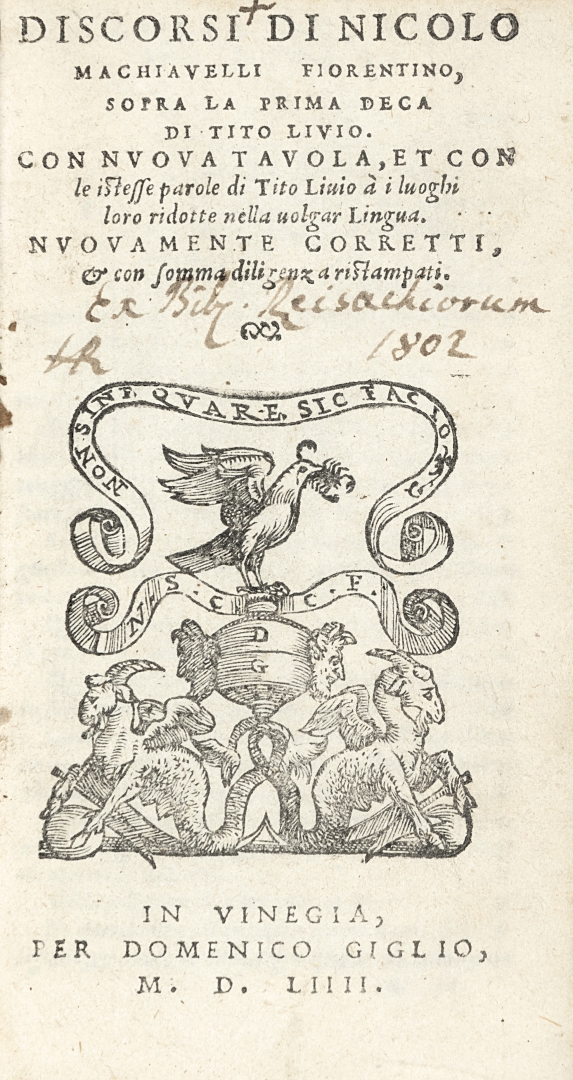 DISCORSI DI NICOLO
MACHIAVELLI FIORENTINO,
SOPRA LA PRIMA DECA
DI TITO LIVIO.
CON NVOVA TAVOLA, ET CON
le istesse parole di Tito Liuio à i luoghi
loro ridotte nella uolgar Lingua.
NVOVAMENTE CORRETTI,
& con somma diligenza ristampati.
Ex Bibl. Reisachiorum
HR 1802
NON SINE QVARE SIC FAC IO
N S. C C. F.
D
G
IN VINEGIA,
PER DOMENICO GIGLIO,
M. D. LIIII.